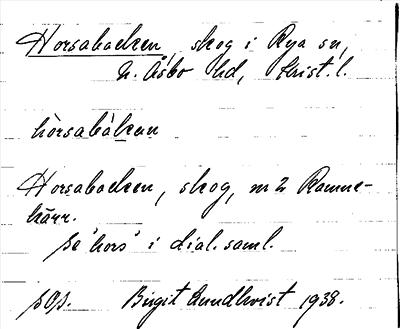 Horsabacken, skog i Rya sn,
N. Åsbo hd, Krist. l.
hòrsabàkan
Horsabacken, skog, m 2 Ramne-
kärr.
se 'hors' i dial. saml.
sgs. Birgit Lundkvist 1938.